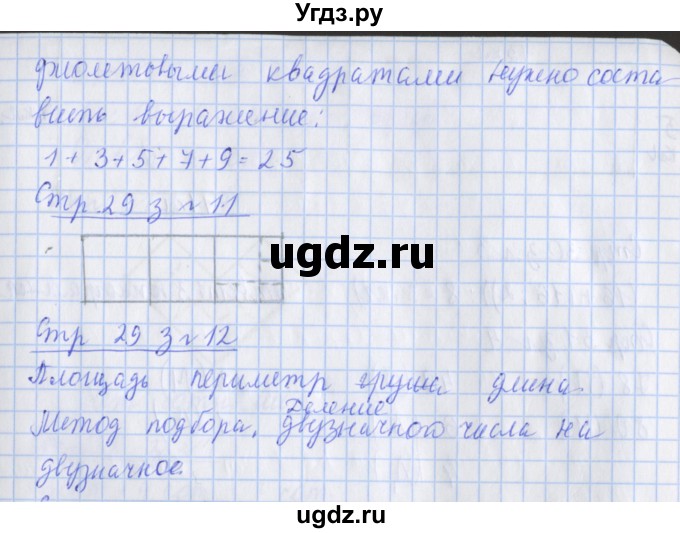 Угдз.ру
фиолетовыми квадратами нужно соста-
вить выражение:
1 + 3 + 5 + 7 + 9 = 25
Стр 29 з ~ 11
ugdz.ru
Стр 29 з ~ 12
Площадь периметр груша длина.
Деление
Метод подбора. двузначного числа на
двузначное.
ugdz.ru